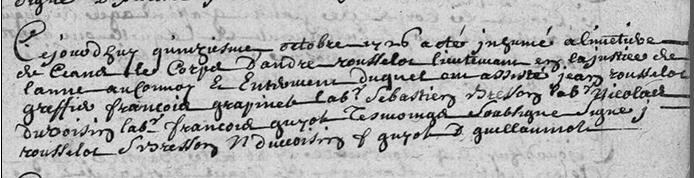 Cejourdhuy quinziesme octobre 1726 a esté inhumé a limetiere
de Ceans le Corps dandré rousselot lieutenant en la justice de
Convoy Et Enterement duquel ont assisté jean rousselot
greffier françois grapinet lab.r Sebastien bresson lab.r Nicolas
duvoisin lab.r françois guyot Tesmoings Soubsigne Signe j
rousselot S bresson N duvoisin f guyot D guillaumot